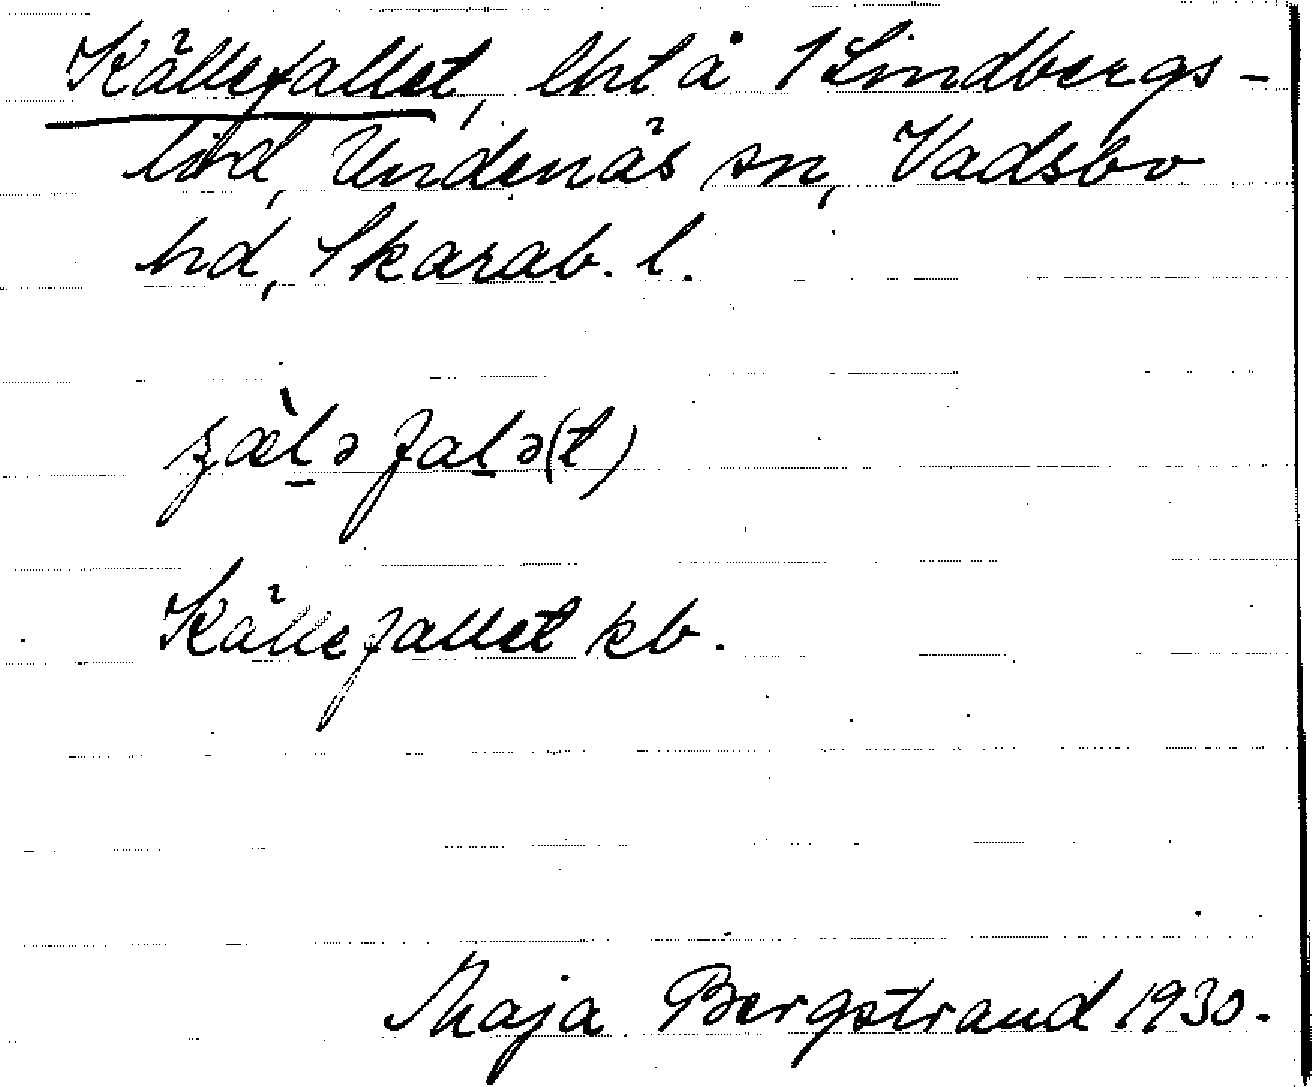 Källefallet, lht å 1 Lindbergs-
löd, Undenäs sn, Vadsbo
hd, Skarab. l.
Källefallet kb.
Maja Bergstrand 1930.